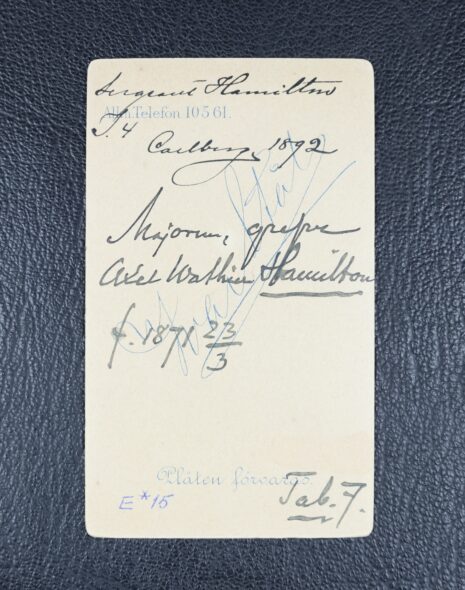 Sergeant Hamilton
Allm. Telefon 10561.
I. 4
Carlberg, 1892
Majoren, greve
Axel Wathier Hamilton
f. 1871 23/3
Plåten förvaras.
E*15
Tab. 7.